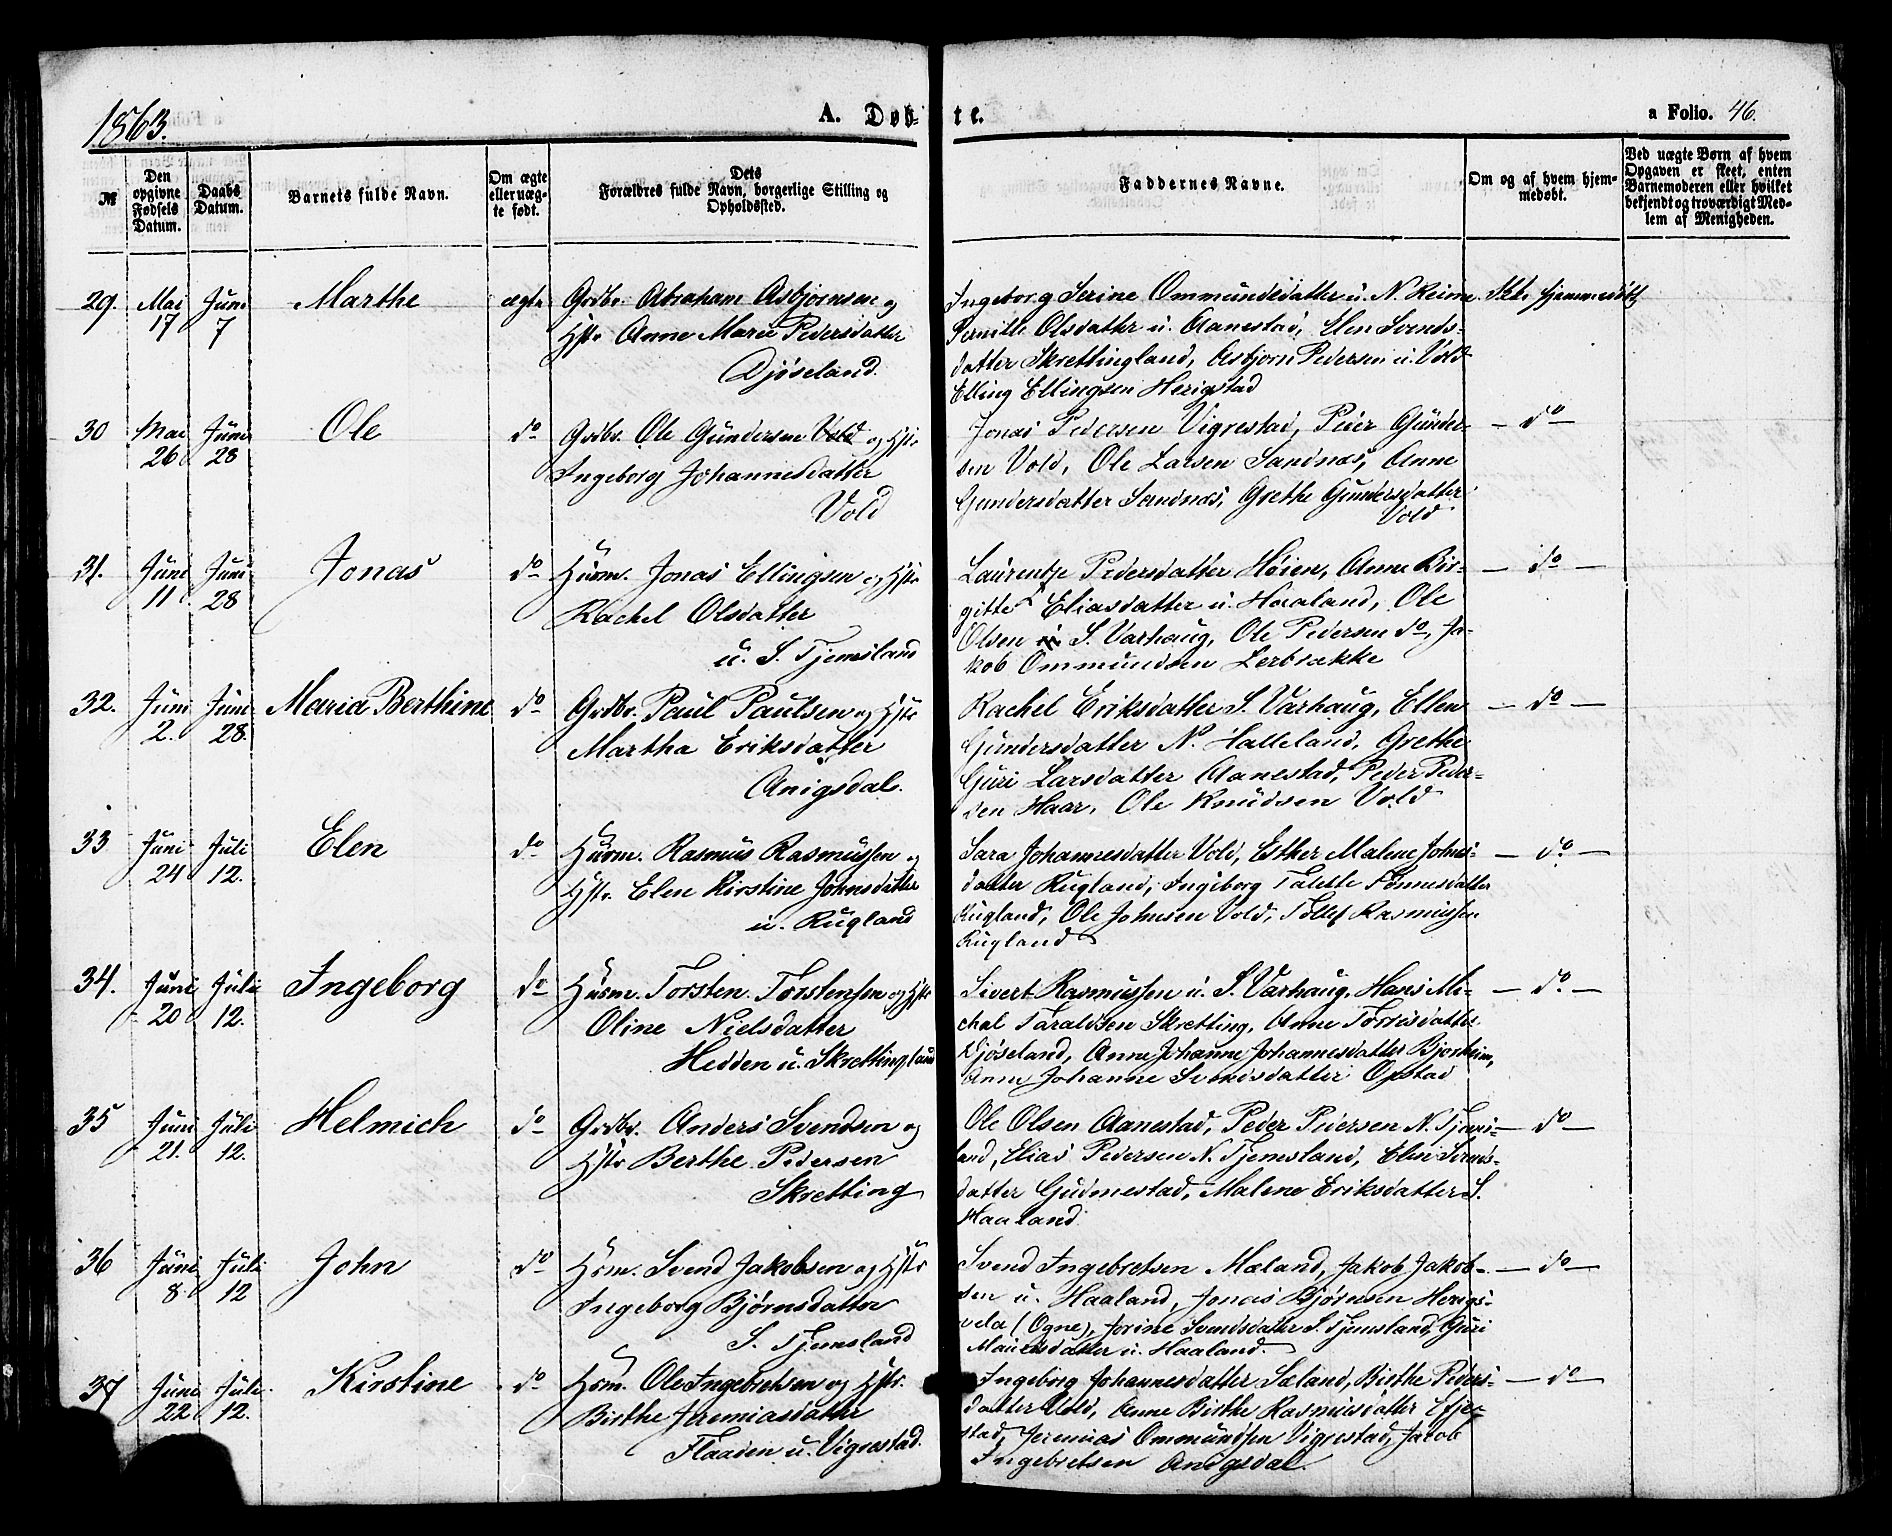 1863.
A. Døb-
te.
a Folio. 46.
№
Den opgivne Fødsels Datum.
Daabs Datum.
Barnets fulde Navn.
Om ægte eller uægte født.
Dets Forældres fulde Navn, borgerlige Stilling og Opholdssted.
Faddernes Navne.
Om og af hvem hjemmedøbt.
Ved uægte Børn af hvem Opgaven er skeet, enten Barnemoderen eller hvilket bekjendt og troværdigt Medlem af Menigheden.
29. Mai 17 Juni 7 Marthe ægte
Grdbr. Abraham Asbjørnsen og
Hstr Anne Marie Pedersdatter
Djøseland.
Ingeborg Serine Ommundsdatter u. N. Reime.
Pernille Olsdatter u. Aanestad, Elen Svends-
datter Skrettingland, Asbjørn Pedersen u. Vold
Elling Ellingsen Herigstad
hjemmedøbt
30 Mai 26 Juni 28 Ole do
Grdbr. Ole Gundersen Vold og Hstr
Ingeborg Johannesdatter
Vold
Jonas Pedersen Vigrestad, Peder Gunder-
sen Vold, Ole Larsen Sandnæs, Anne
Gundersdatter Sandnæs, Grethe Gundersdatter
Vold
— do —
31. Juni 11 Juni 28 Jonas do
Husm. Jonas Ellingsen og Hstr
Rachel Olsdatter
u. S. Tjemsland
Laurentje Pedersdatter Høien, Anne Bir-
gitte Eliasdatter u. Haaland, Ole
Olsen S. Varhaug, Ole Pedersen do, Ja-
kob Ommundsen Lerbrække
— do —
32. Juni 2. Juni 28. Maria Berthine do
Grdbr. Paul Paulsen og Hstr
Martha Eriksdatter
Anigsdal.
Rachel Eriksdatter S. Varhaug, Ellen
Gundersdatter N. Halleland, Grethe
Guri Larsdatter Aanestad, Peder Peder-
sen Haar, Ole Knudsen Vold
— do —
33 Juni 24 Juli 12. Elen do
Husm. Rasmus Rasmussen og
Hstr. Elen Kirstine Johnsdatter
u. Rugland
Sara Johannesdatter Vold, Esther Malene Johns-
datter Rugland, Ingeborg Talette Tønnesdatter
Rugland, Ole Johnsen Vold, Tollef Rasmussen
Rugland
— do —
34. Juni 20 Juli 12. Ingeborg do
Husm. Torsten Torstensen og Hstr
Oline Nielsdatter
Hedden u. Skrettingland
Sivert Rasmussen u. S. Varhaug, Hans Mi-
chal Taraldsen Skretting, Anne Torrisdatter
Djøseland, Anne Johanne Johannesdatter Bjorheim,
Anne Johanne Svendsdatter Opstad
— do —
35 Juni 21. Juli 12. Helmich do
Grdbr. Anders Svendsen og
Hstr Berthe Pedersen
Skretting
Ole Olsen Aanestad, Peder Pedersen N. Tjems-
land, Elias Pedersen N. Tjemsland, Elen Svends-
datter Gudmestad, Malene Eriksdatter S.
Haaland
— do —
36 Juni 8. Juli 12 John do
Hsm. Svend Jakobsen og Hstr
Ingeborg Bjørnsdatter
S. Tjemsland
Svend Ingebretsen Mæland, Jakob Jakob-
sen u. Haaland, Jonas Bjørnsen Herigs-
vela (Ogne), Jorine Svendsdatter S. Tjemsland, Guri
u. Haaland.
— do —
37 Juni 22 Juli 12. Kirstine do
Hsm. Ole Ingebretsen og Hstr.
Birthe Jeremiasdatter
Flaaden u. Vigrestad.
Ingeborg Johannesdatter Sæland, Birthe Peders-
datter Vold, Anne Birthe Rasmusdatter Efje-
stad, Jeremias Ommundsen Vigrestad, Jacob
Ingebretsen Anigsdal.
— do —